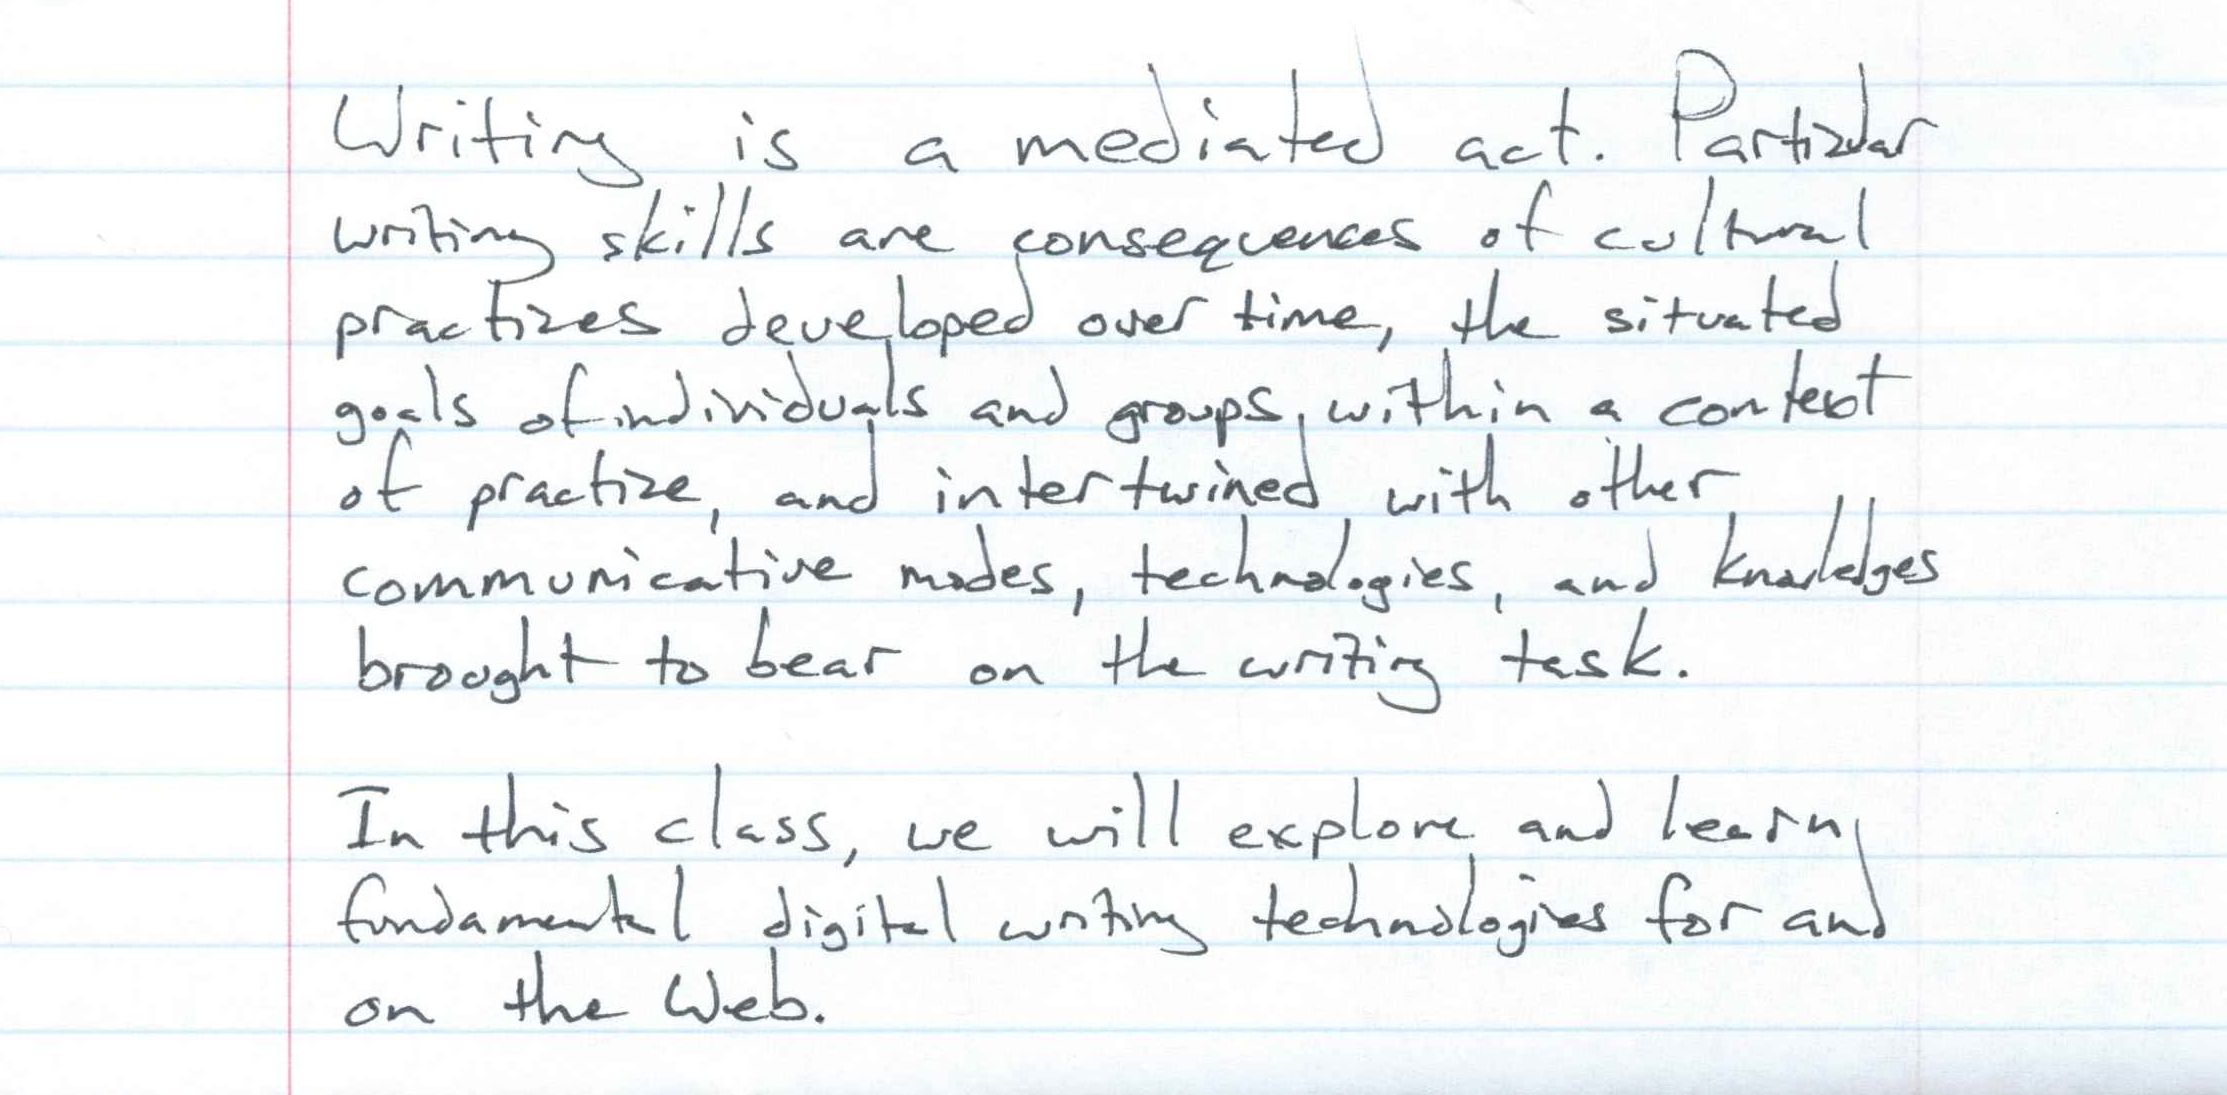 Writing is a mediated act. Particular
writing skills are consequences of cultural
practices developed over time, the situated
goals of individuals and groups, within a context
of practice, and intertwined with other
communicative modes, technologies, and knowledges
brought to bear on the writing task.
In this class, we will explore and learn
fundamental digital writing technologies for and
on the Web.